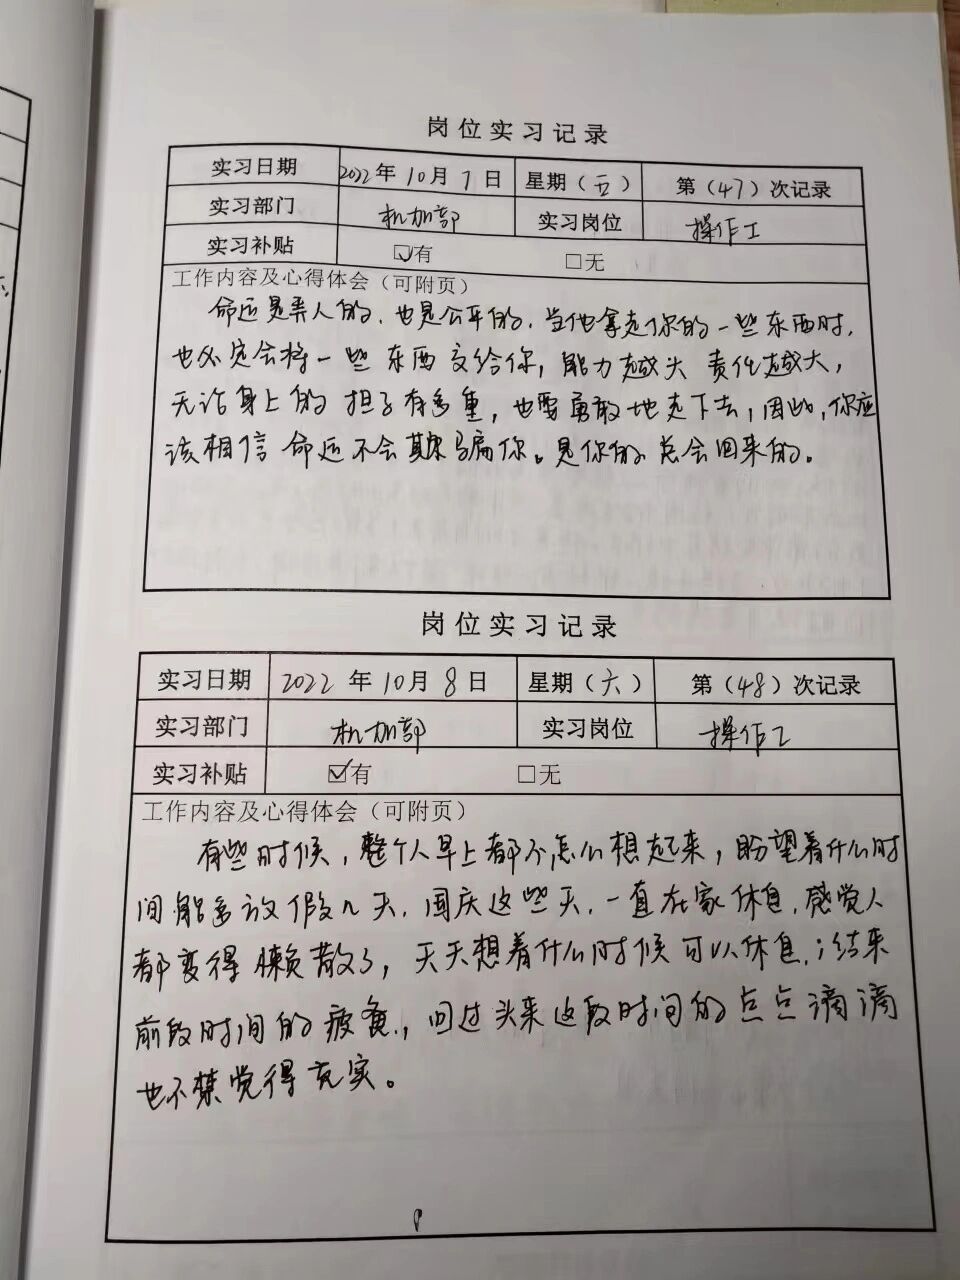 岗位实习记录
实习日期 2022年10月7日 星期（五） 第（47）次记录
实习部门 机加部 实习岗位 操作工
实习补贴 ☑有 □无
工作内容及心得体会（可附页）
命运是弄人的，也是公平的，当他拿走你的一些东西时，
也必定会将一些东西交给你，能力越大 责任越大，
无论身上的担子有多重，也要勇敢地走下去，因此，你应
该相信命运不会欺骗你。是你的总会回来的。
岗位实习记录
实习日期 2022年10月8日 星期（六） 第（48）次记录
实习部门 机加部 实习岗位 操作工
实习补贴 ☑有 □无
工作内容及心得体会（可附页）
有些时候，整个人早上都不怎么想起来，盼望着什么时
间能多放假几天，国庆这些天，一直在家休息，感觉人
都变得懒散了，天天想着什么时候可以休息，结束
前段时间的疲惫，回过头来这段时间的点点滴滴
也不禁觉得充实。